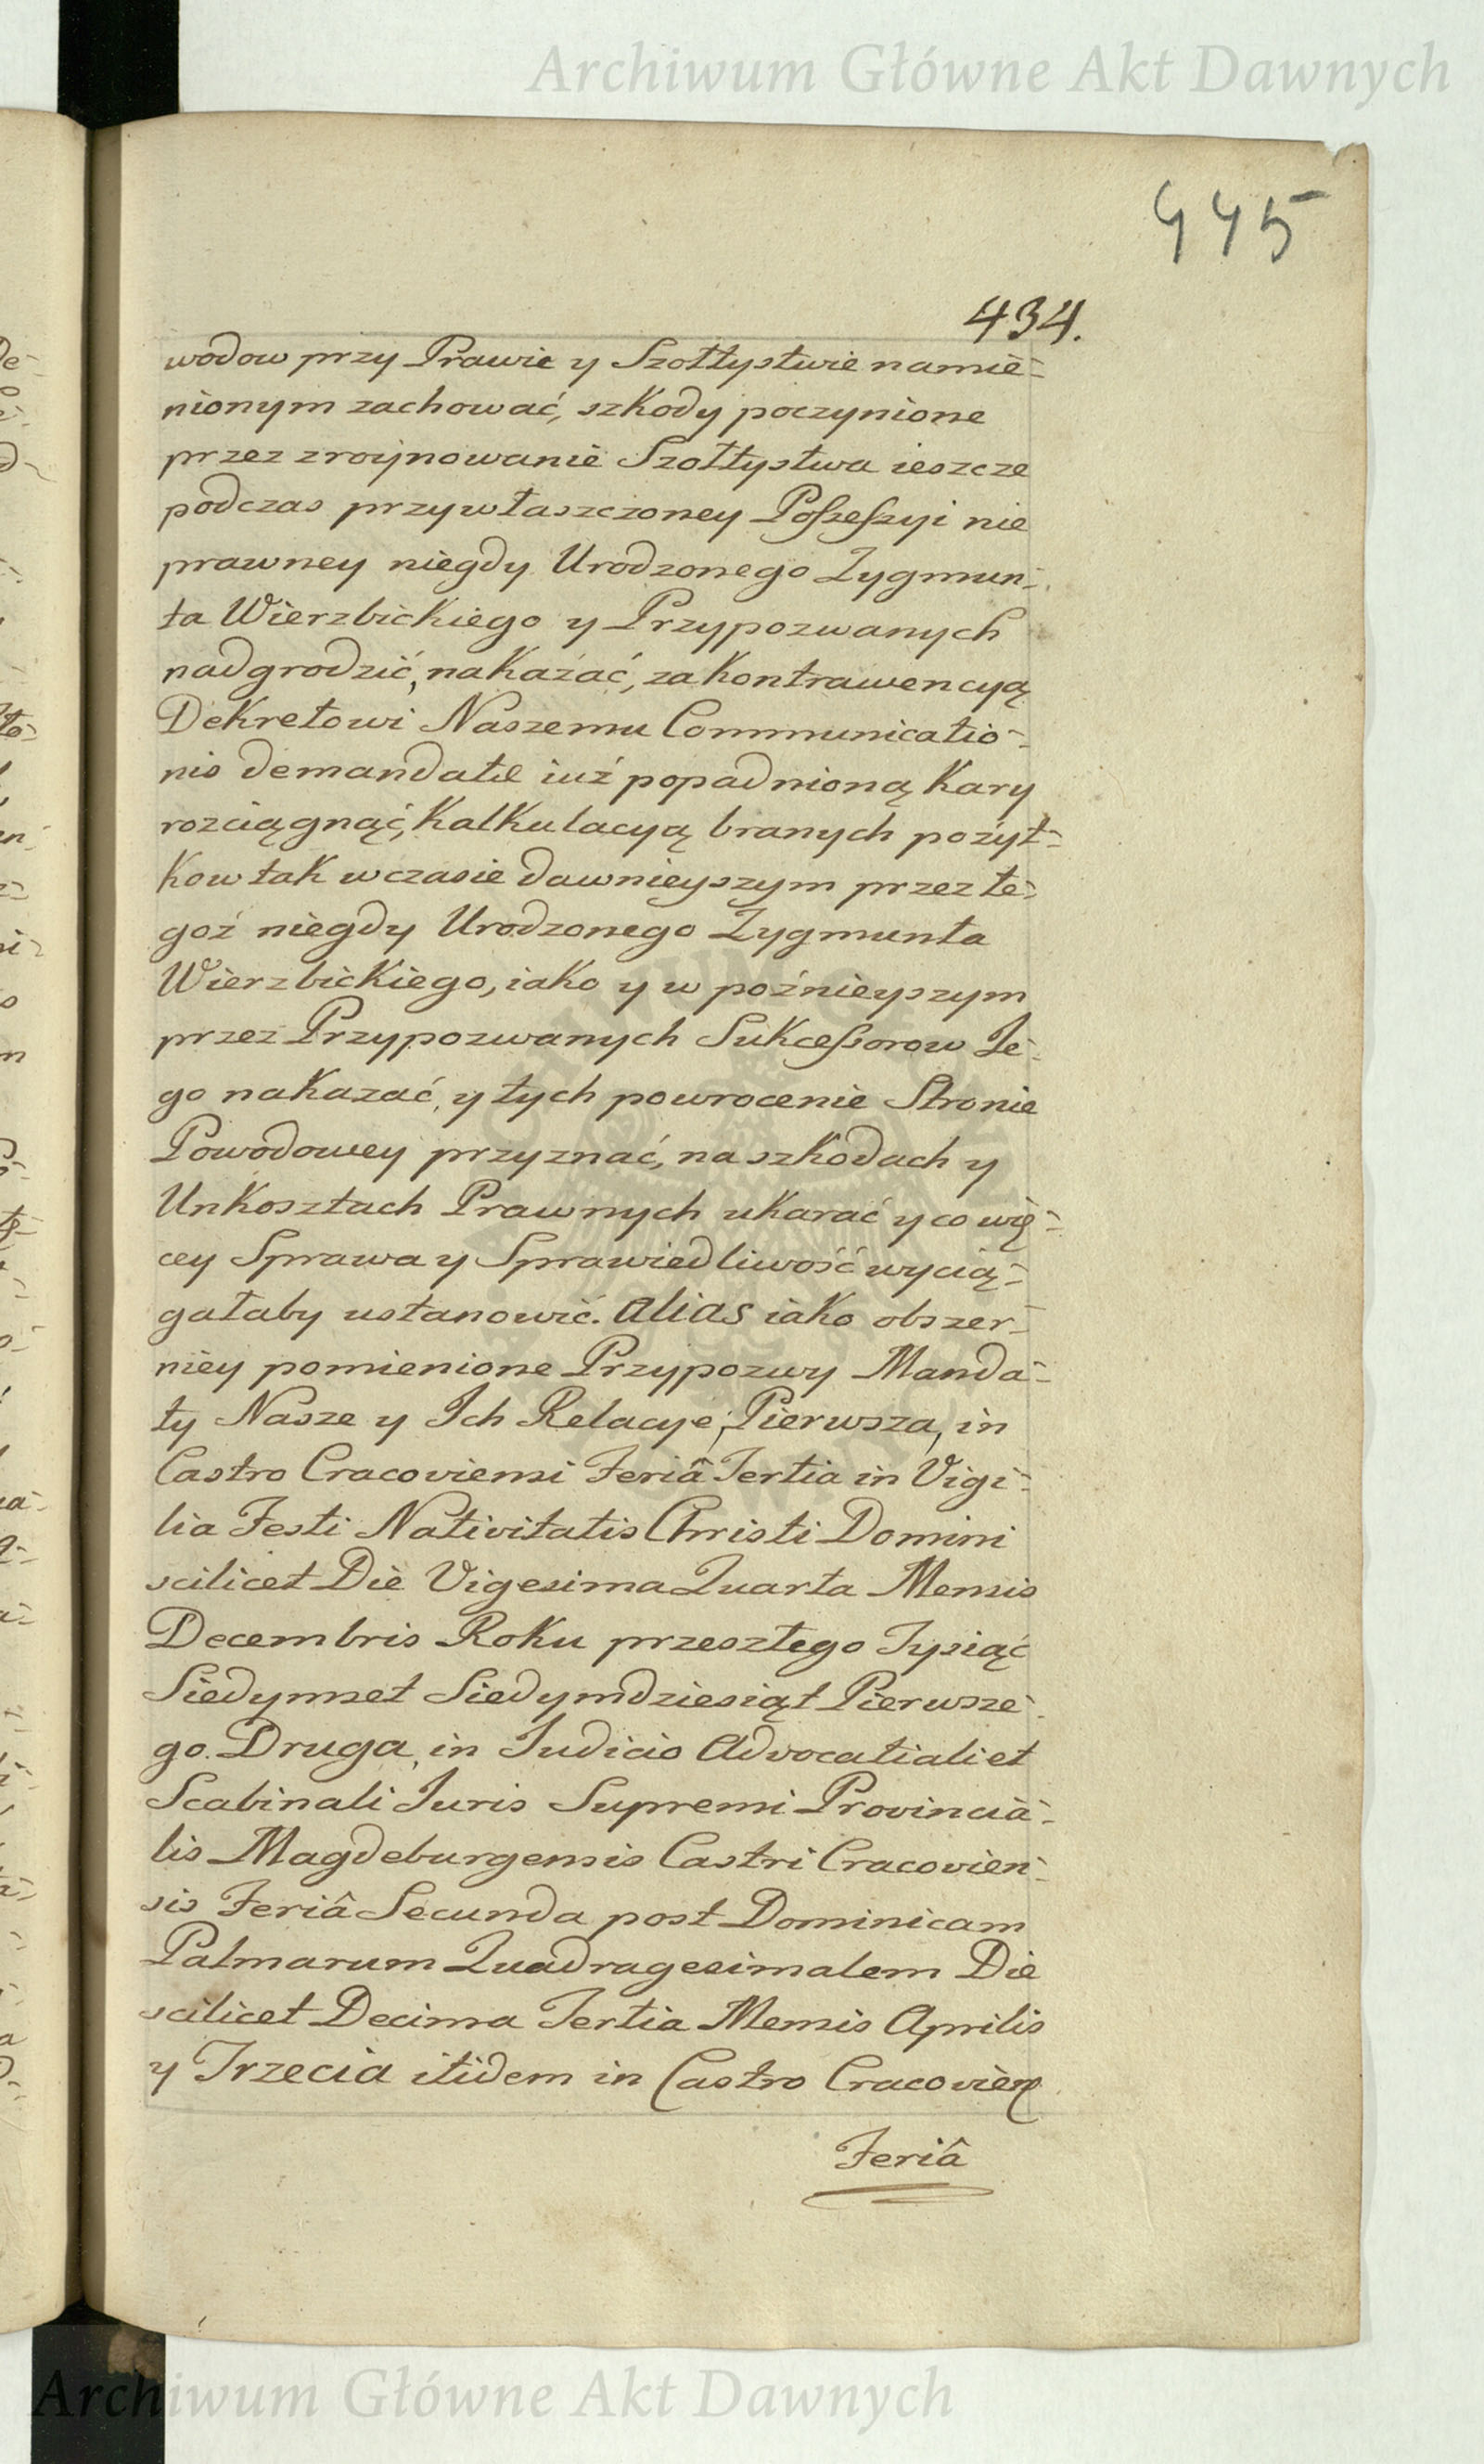 Archiwum Główne Akt Dawnych
445
434.
wodow przy Prawie y Szołtystwie namie-
nionym zachować, szkody poczynione
przez zroynowanie Szołtystwa ieszcze
podczas przywłaszczoney Possessyi nie
prawney niegdy Urodzonego Zygmun-
ta Wierzbickiego y Przypozwanych
nadgrodzić, nakazać, za kontrawencyą
Dekretowi Naszemu Communicatio-
nis demandatæ iuż popadnioną kary
rozciągnąć, kalkulacyą branych pożyt-
kow tak w czasie dawnieyszym przez te-
goż niegdy Urodzonego Zygmunta
Wierzbickiego, iako y w poźnieyszym
przez Przypozwanych Sukcessorow Je-
go nakazać, y tych powrocenie Stronie
Powodowey przyznać, na szkodach y
Unkosztach Prawnych ukarać y co wię-
cey Sprawa y Sprawiedliwość wycią-
gałaby ustanowić. Alias iako obszer-
niey pomienione Przypozwy Manda-
ty Nasze y Ich Relacye, Pierwsza, in
Castro Cracoviensi Feriâ Tertia in Vigi-
lia Festi Nativitatis Christi Domini
scilicet Die Vigesima Quarta Mensis
Decembris Roku przeszłego Tysiąc
Siedymset Siedymdziesiąt Pierwsze-
go. Druga, in Judicio Advocatiali et
Scabinali Juris Supremi Provincia-
lis Magdeburgensis Castri Cracovien-
sis Feriâ Secunda post Dominicam
Palmarum Quadragesimalem Die
scilicet Decima Tertia Mensis Aprilis
y Trzecia itidem in Castro Cracovien
Feriâ
Archiwum Główne Akt Dawnych